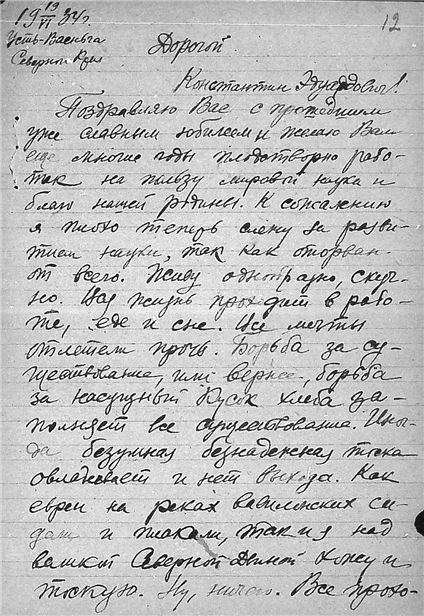 19 13/VI 34 г.
12
Усть-Ваеньга
Северной Края
Дорогой
Константин Эдуардович!
Поздравляю Вас с прошедшим
уже славным юбилеем и желаю Вам
еще многие годы плодотворно рабо-
тать на пользу мировой науки и
благо нашей родины. К сожалению
я плохо теперь слежу за разви-
тием науки, так как оторван
от всего. Живу однообразно, скуч-
но. Вся жизнь проходит в рабо-
те, еде и сне. Все мечты
отлетели прочь. Борьба за су-
ществование, или вернее, борьба
за насущный кусок хлеба за-
полняет все существование. Иног-
да безумная безнадежная тоска
овладевает и нет выхода. Как
евреи на реках вавилонских си-
дели и плакали, так и я над
Северной Двиной хожу и
тоскую. Ну, ничего. Все прохо-